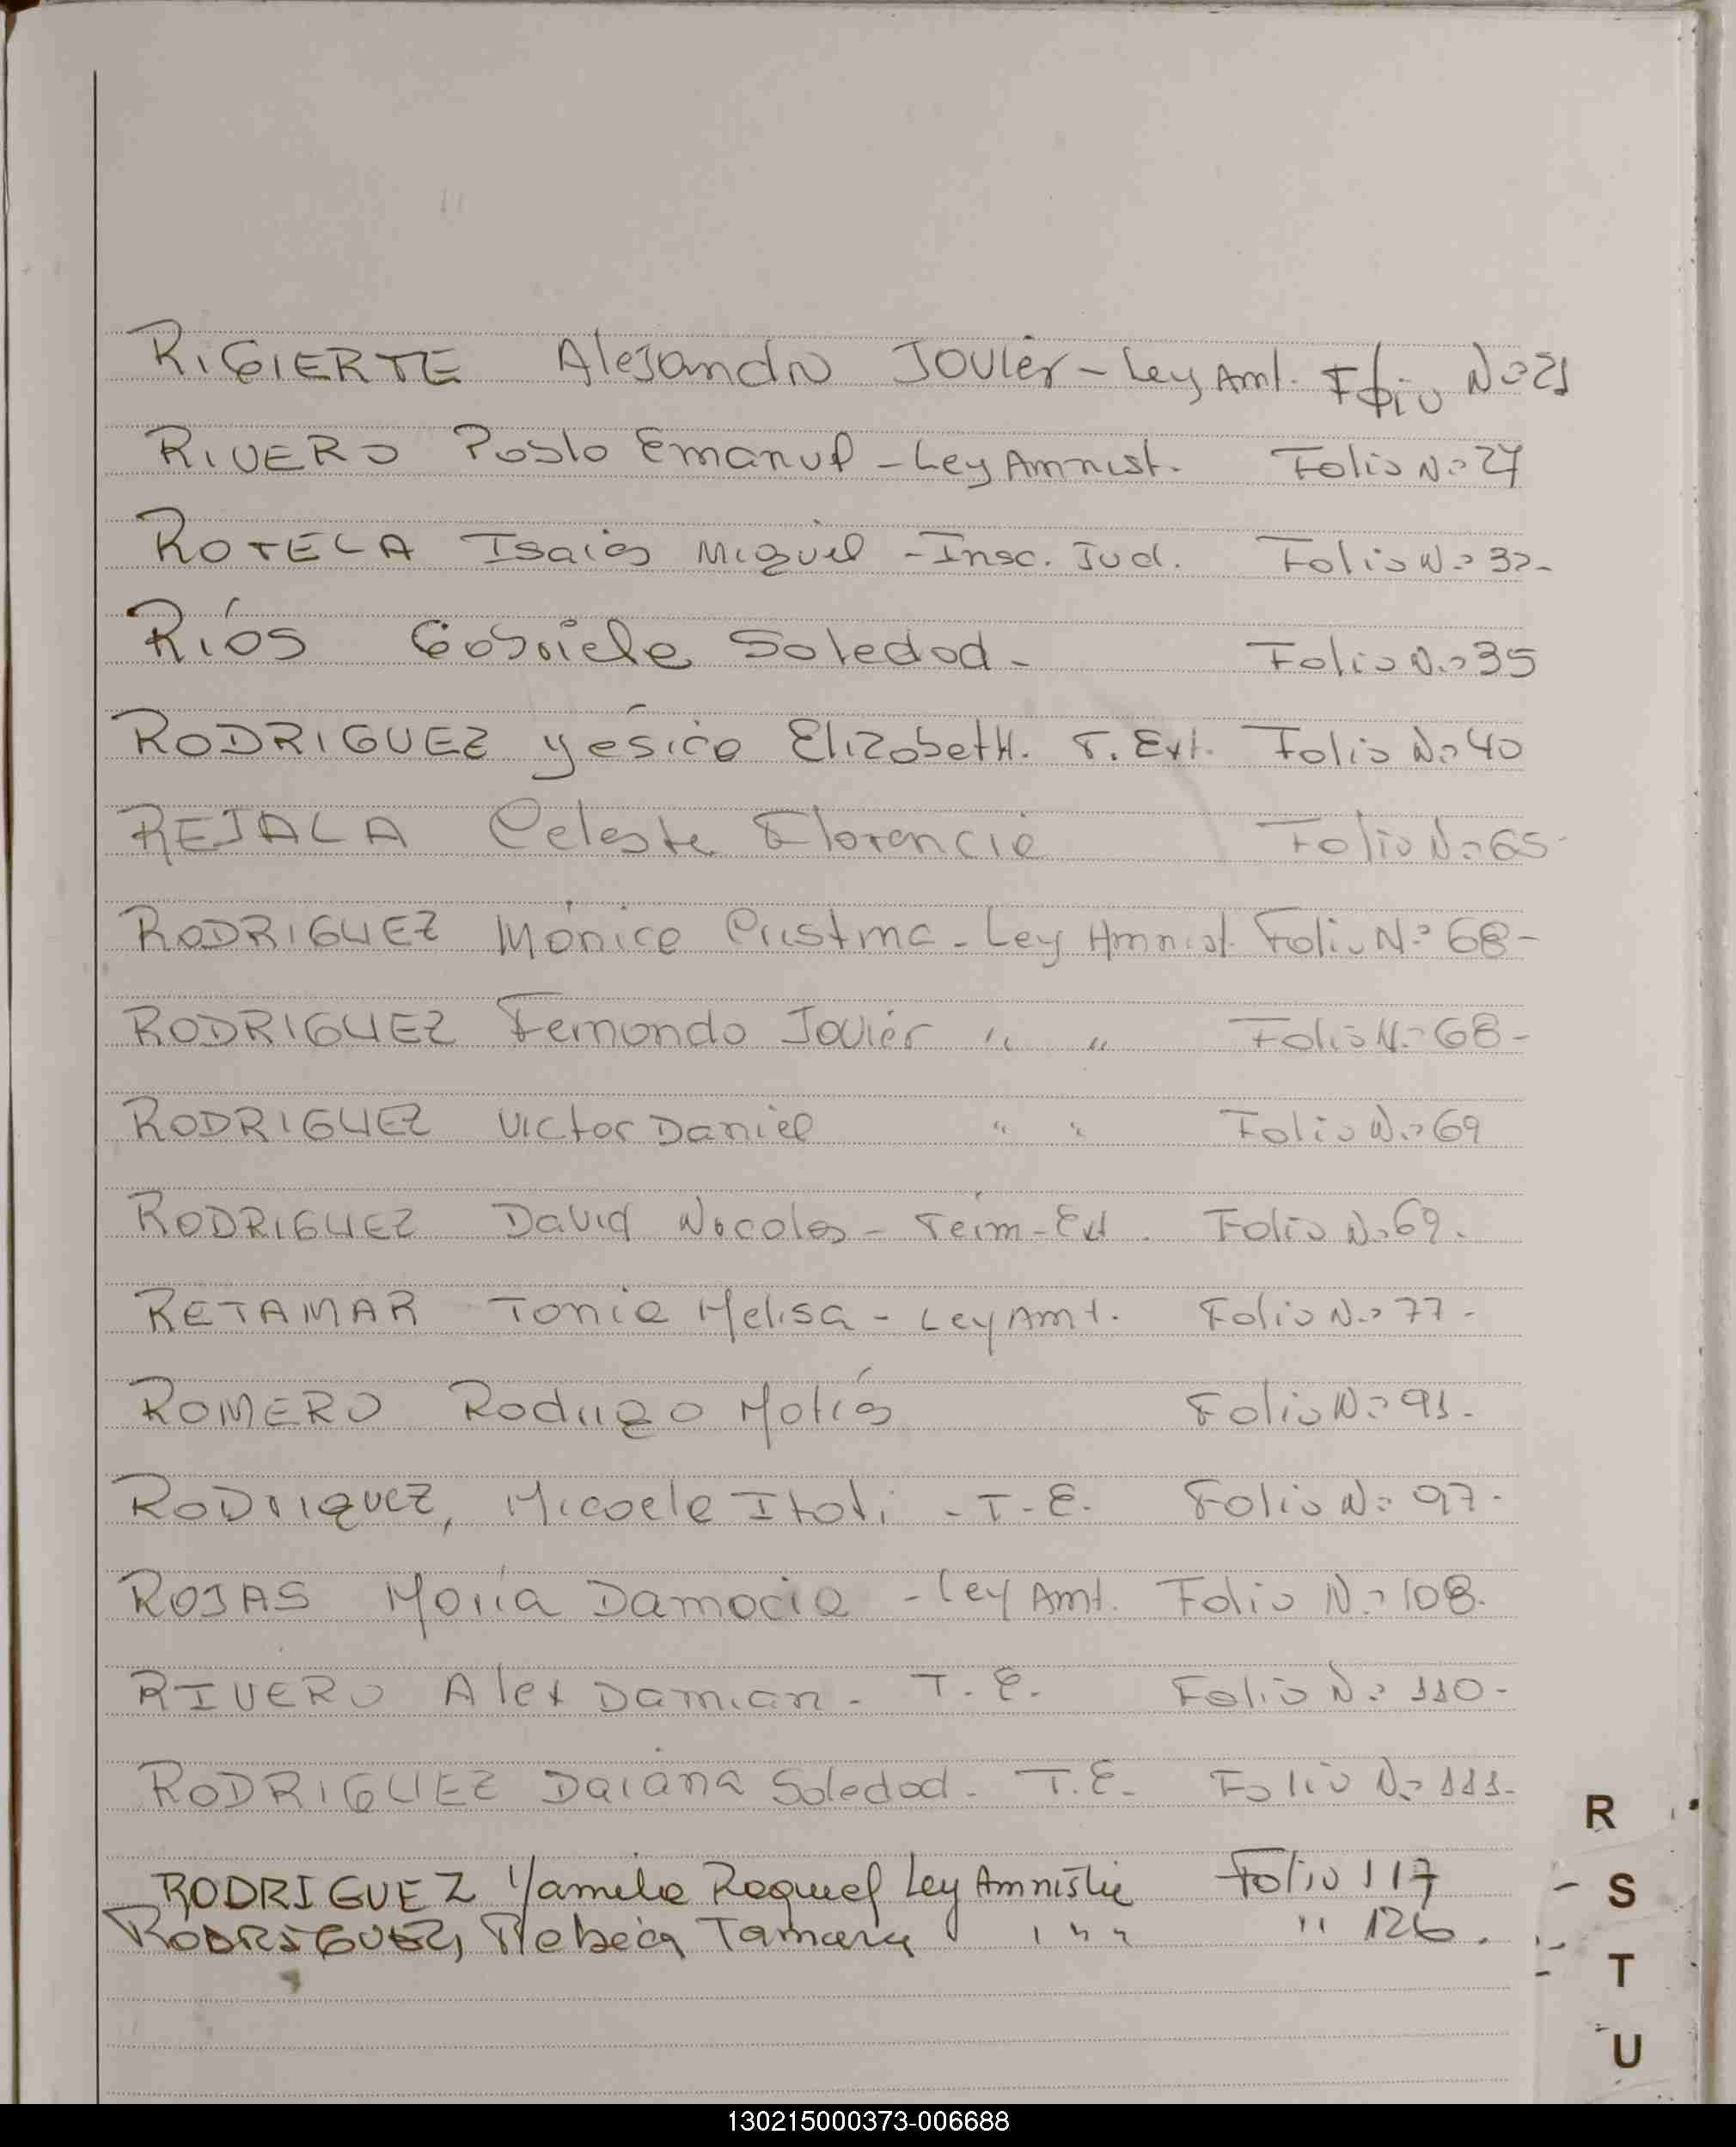 RIGIERTE Alejandro Javier - Ley Amt. Folio N° 21
RIVERO Pablo Emanuel - Ley Amnist. Folio N° 27
ROTELA Isaias Miguel - Insc. Jud. Folio N° 32-
RÍOS Gabriela Soledad - Folio N° 35
RODRIGUEZ Yésica Elizabeth. T. Ext. Folio N° 40
REJALA Celeste Florencia Folio N° 65-
RODRIGUEZ Mónica Cristina - Ley Amnist. Folio N° 68-
RODRIGUEZ Fernando Javier " " Folio N° 68-
RODRIGUEZ Victor Daniel " " Folio N° 69
RODRIGUEZ David Nicolas - Term-Ext. Folio N° 69.
RETAMAR Tania Melisa - Ley Amt. Folio N° 77-
ROMERO Rodrigo Matías Folio N° 91-
RODRIGUEZ, Micaela Itati - T-E. Folio N° 97-
ROJAS María Damacia - Ley Amt. Folio N° 108.
RIVERO Alex Damian - T. E. Folio N° 110-
RODRIGUEZ Daiana Soledad - T.E. Folio N° 111-
RODRIGUEZ Yamila Raquel Ley Amnistia Folio 117
RODRIGUEZ, Rebeca Tamara " " " " 126.
R
S
T
U
130215000373-006688